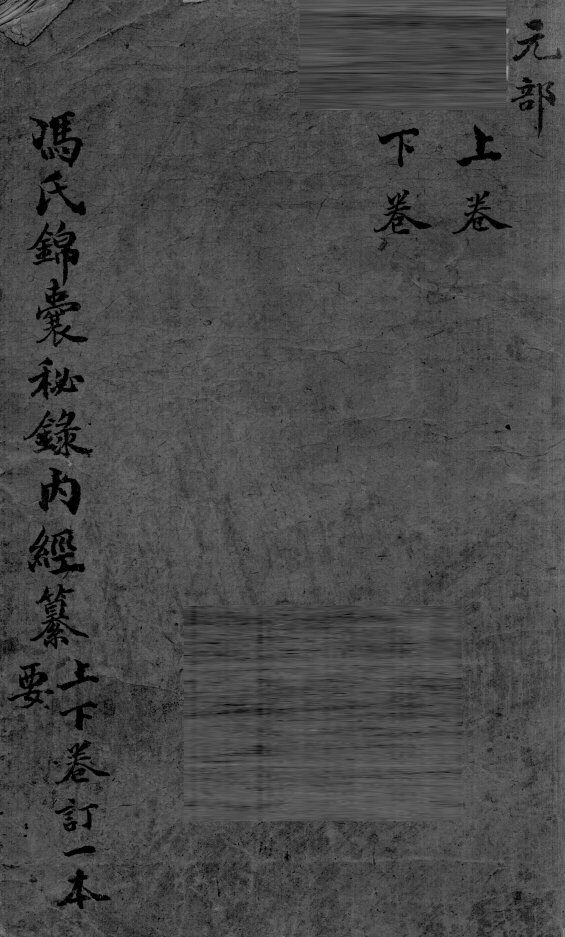 元部
上卷
下卷
馮氏錦囊秘錄內經纂要
上下卷訂一本